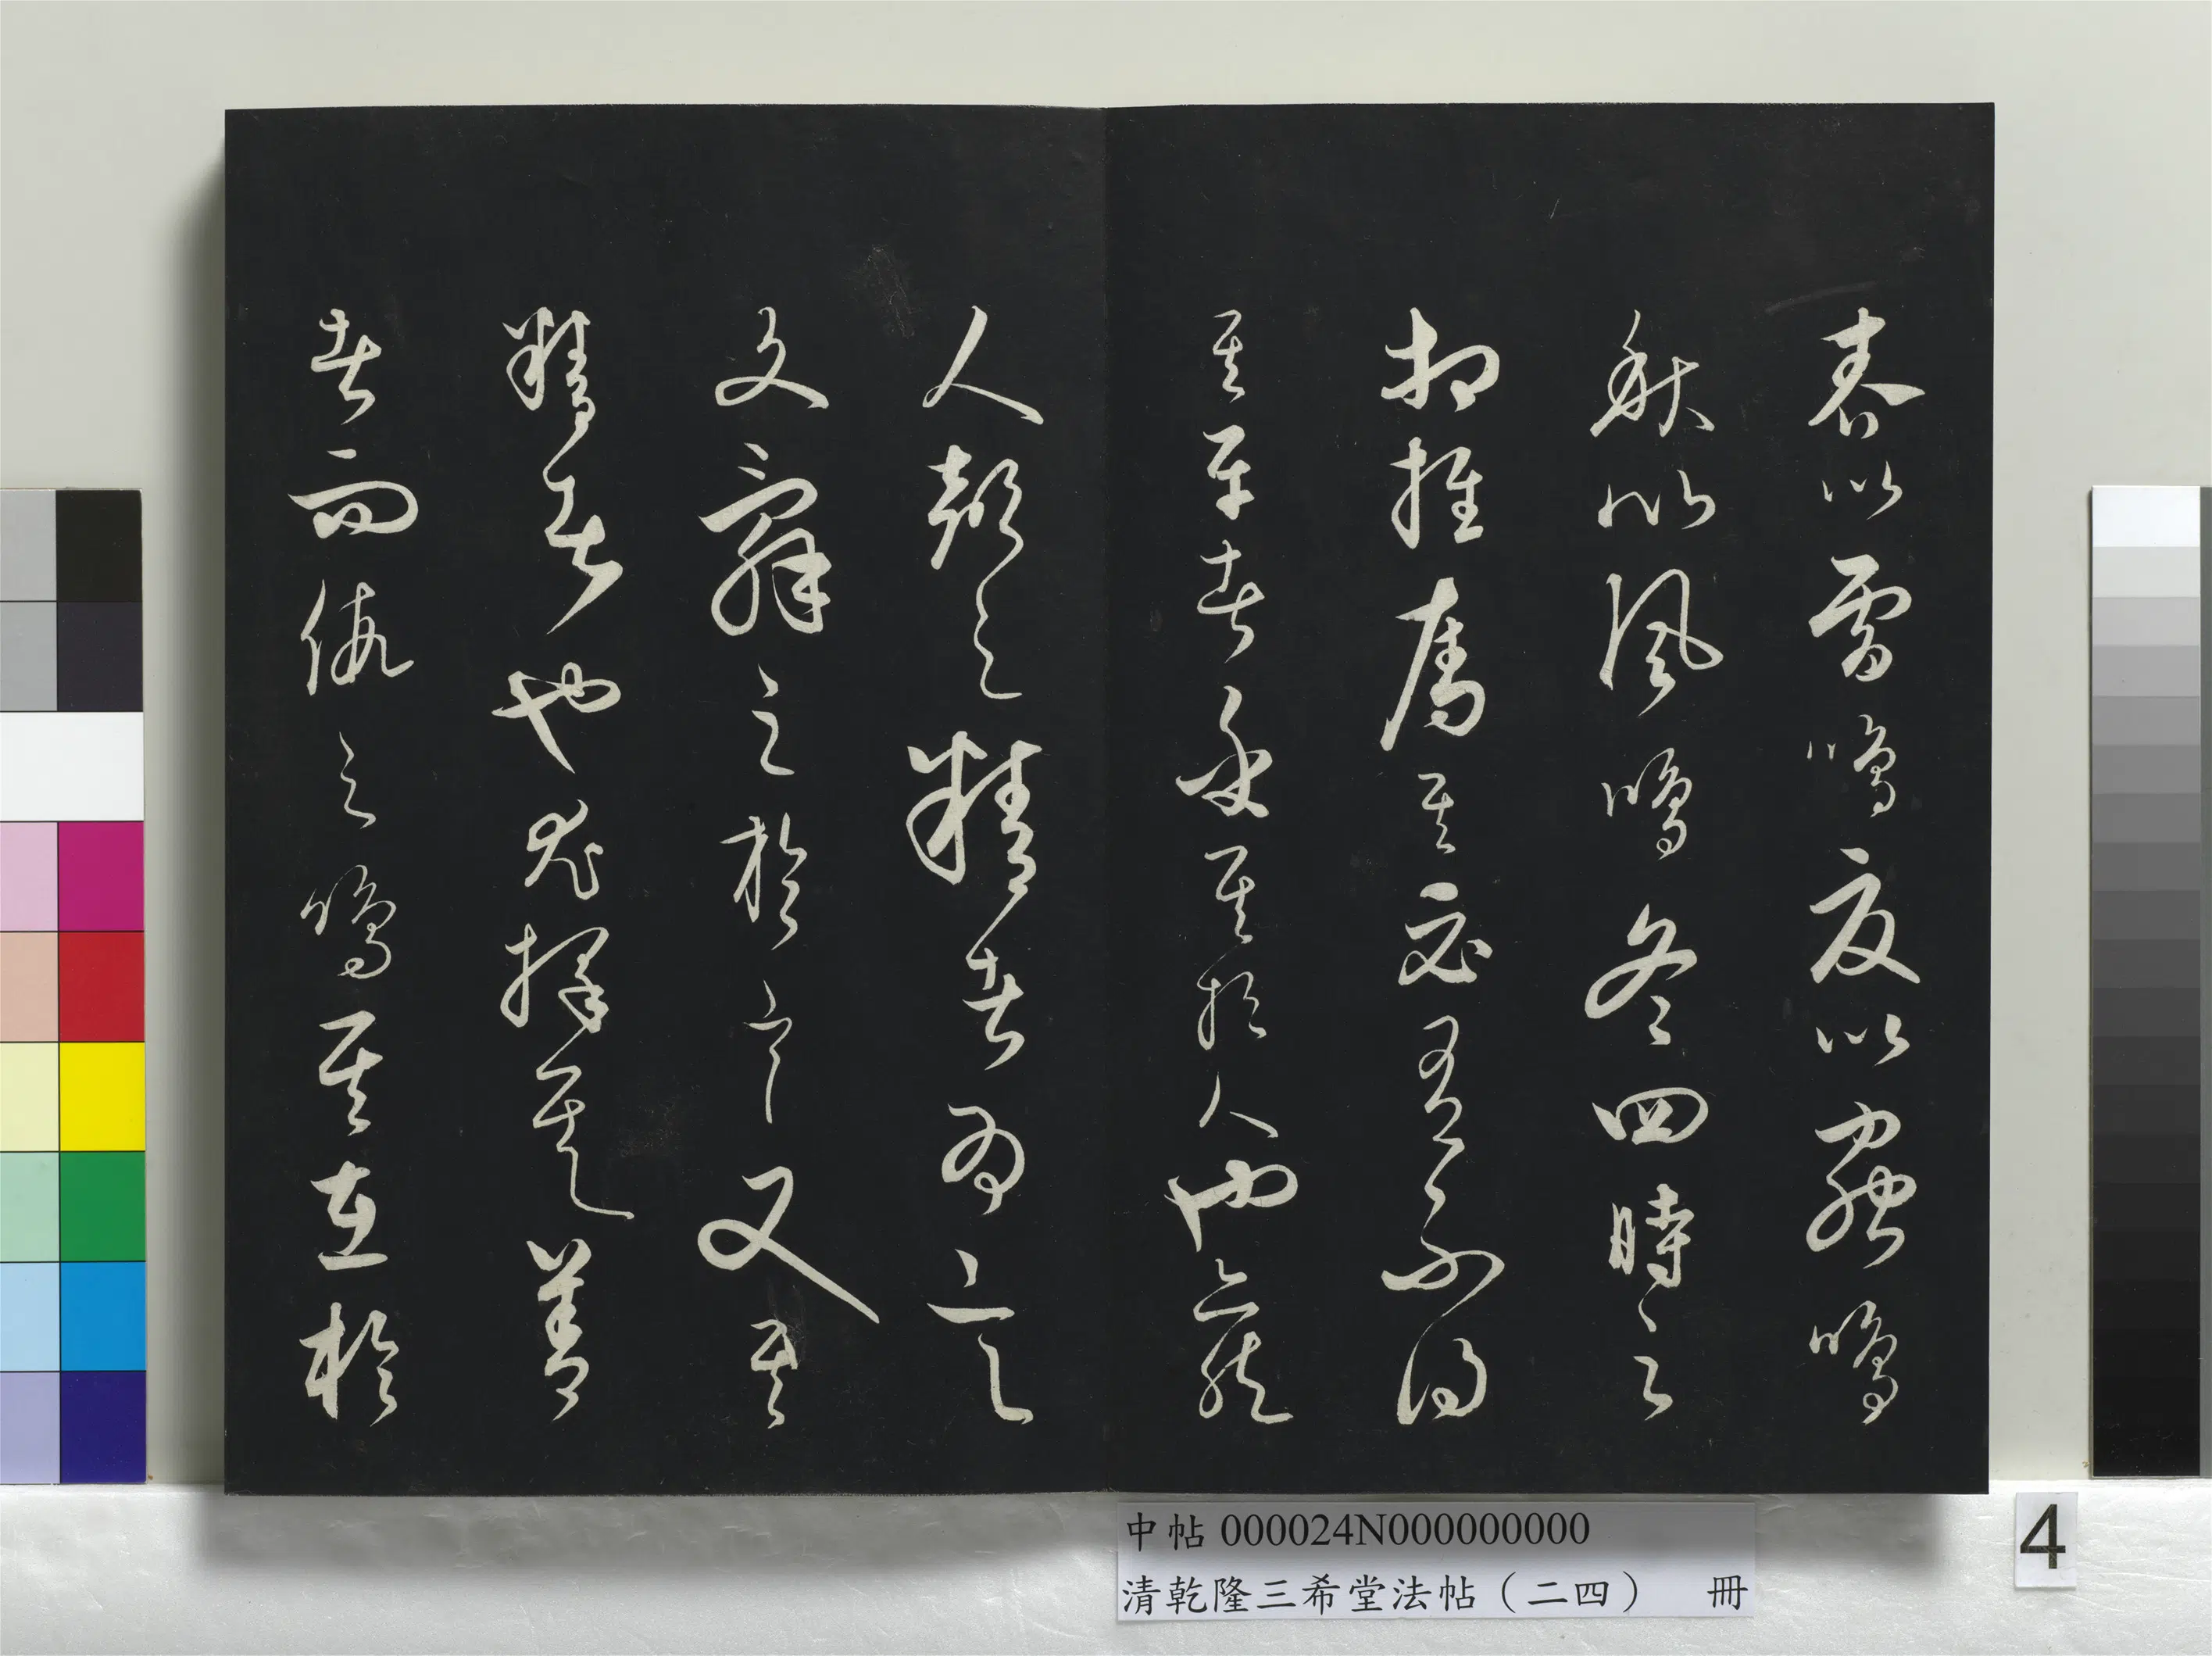 春以雷鳴夏以蟲鳴
秋以風鳴冬四時之
相推奪其必有不得
其平者乎其於人也亦然
人聲之精者為言
文辭之於言又其
精者也尤擇其善
者而假之鳴其在於
中帖 000024N000000000
清乾隆三希堂法帖（二四） 冊
4